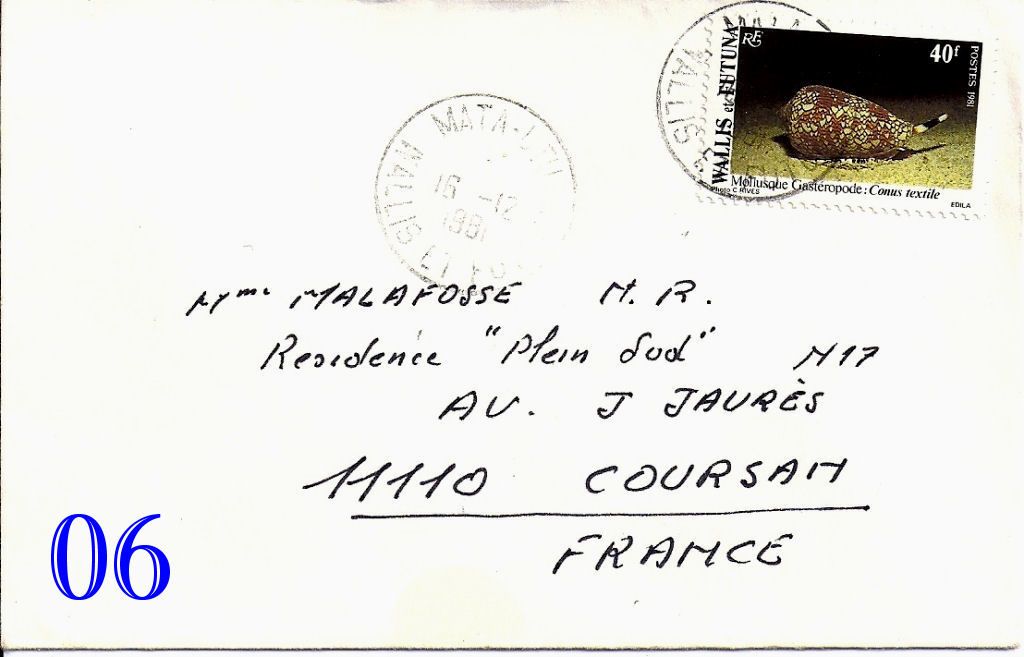 RF
40f
POSTES 1981
WALLIS et FUTUNA
Mollusque Gastéropode : Conus textile
Photo C RIVES
EDILA
MATA-UTU
16 -12
1981
WALLIS ET
WALLIS
Mme MALAFOSSE M. R.
Residence "Plein Sud" N17
AV. J JAURÈS
11110 COURSAN
FRANCE
06